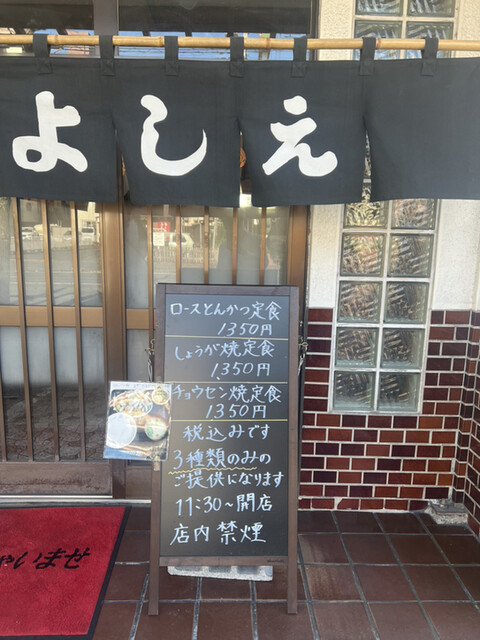 よしえ
ロースとんかつ定食
1350円
しょうが焼定食
1,350円
チョウセン焼定食
1350円
税込みです
3種類のみの
ご提供になります
11:30~開店
店内禁煙
ゃいませ